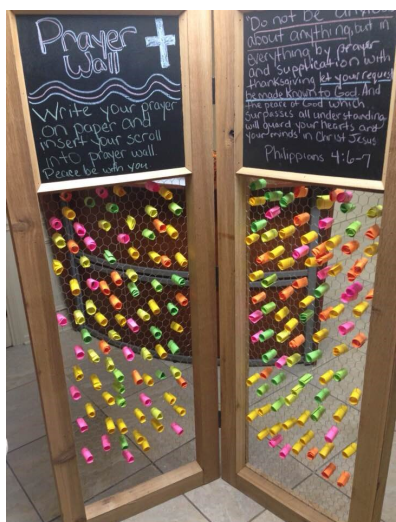 Prayer
Wall
Write your prayer
on paper and
insert your scroll
into prayer wall.
Peace be with you
"Do not be anxious
about anything, but in
everything by prayer
and supplication with
thanksgiving let your request
be made known to God. And
the peace of God which
surpasses all understanding
will guard your hearts and
your minds in Christ Jesus
Philippians 4:6-7